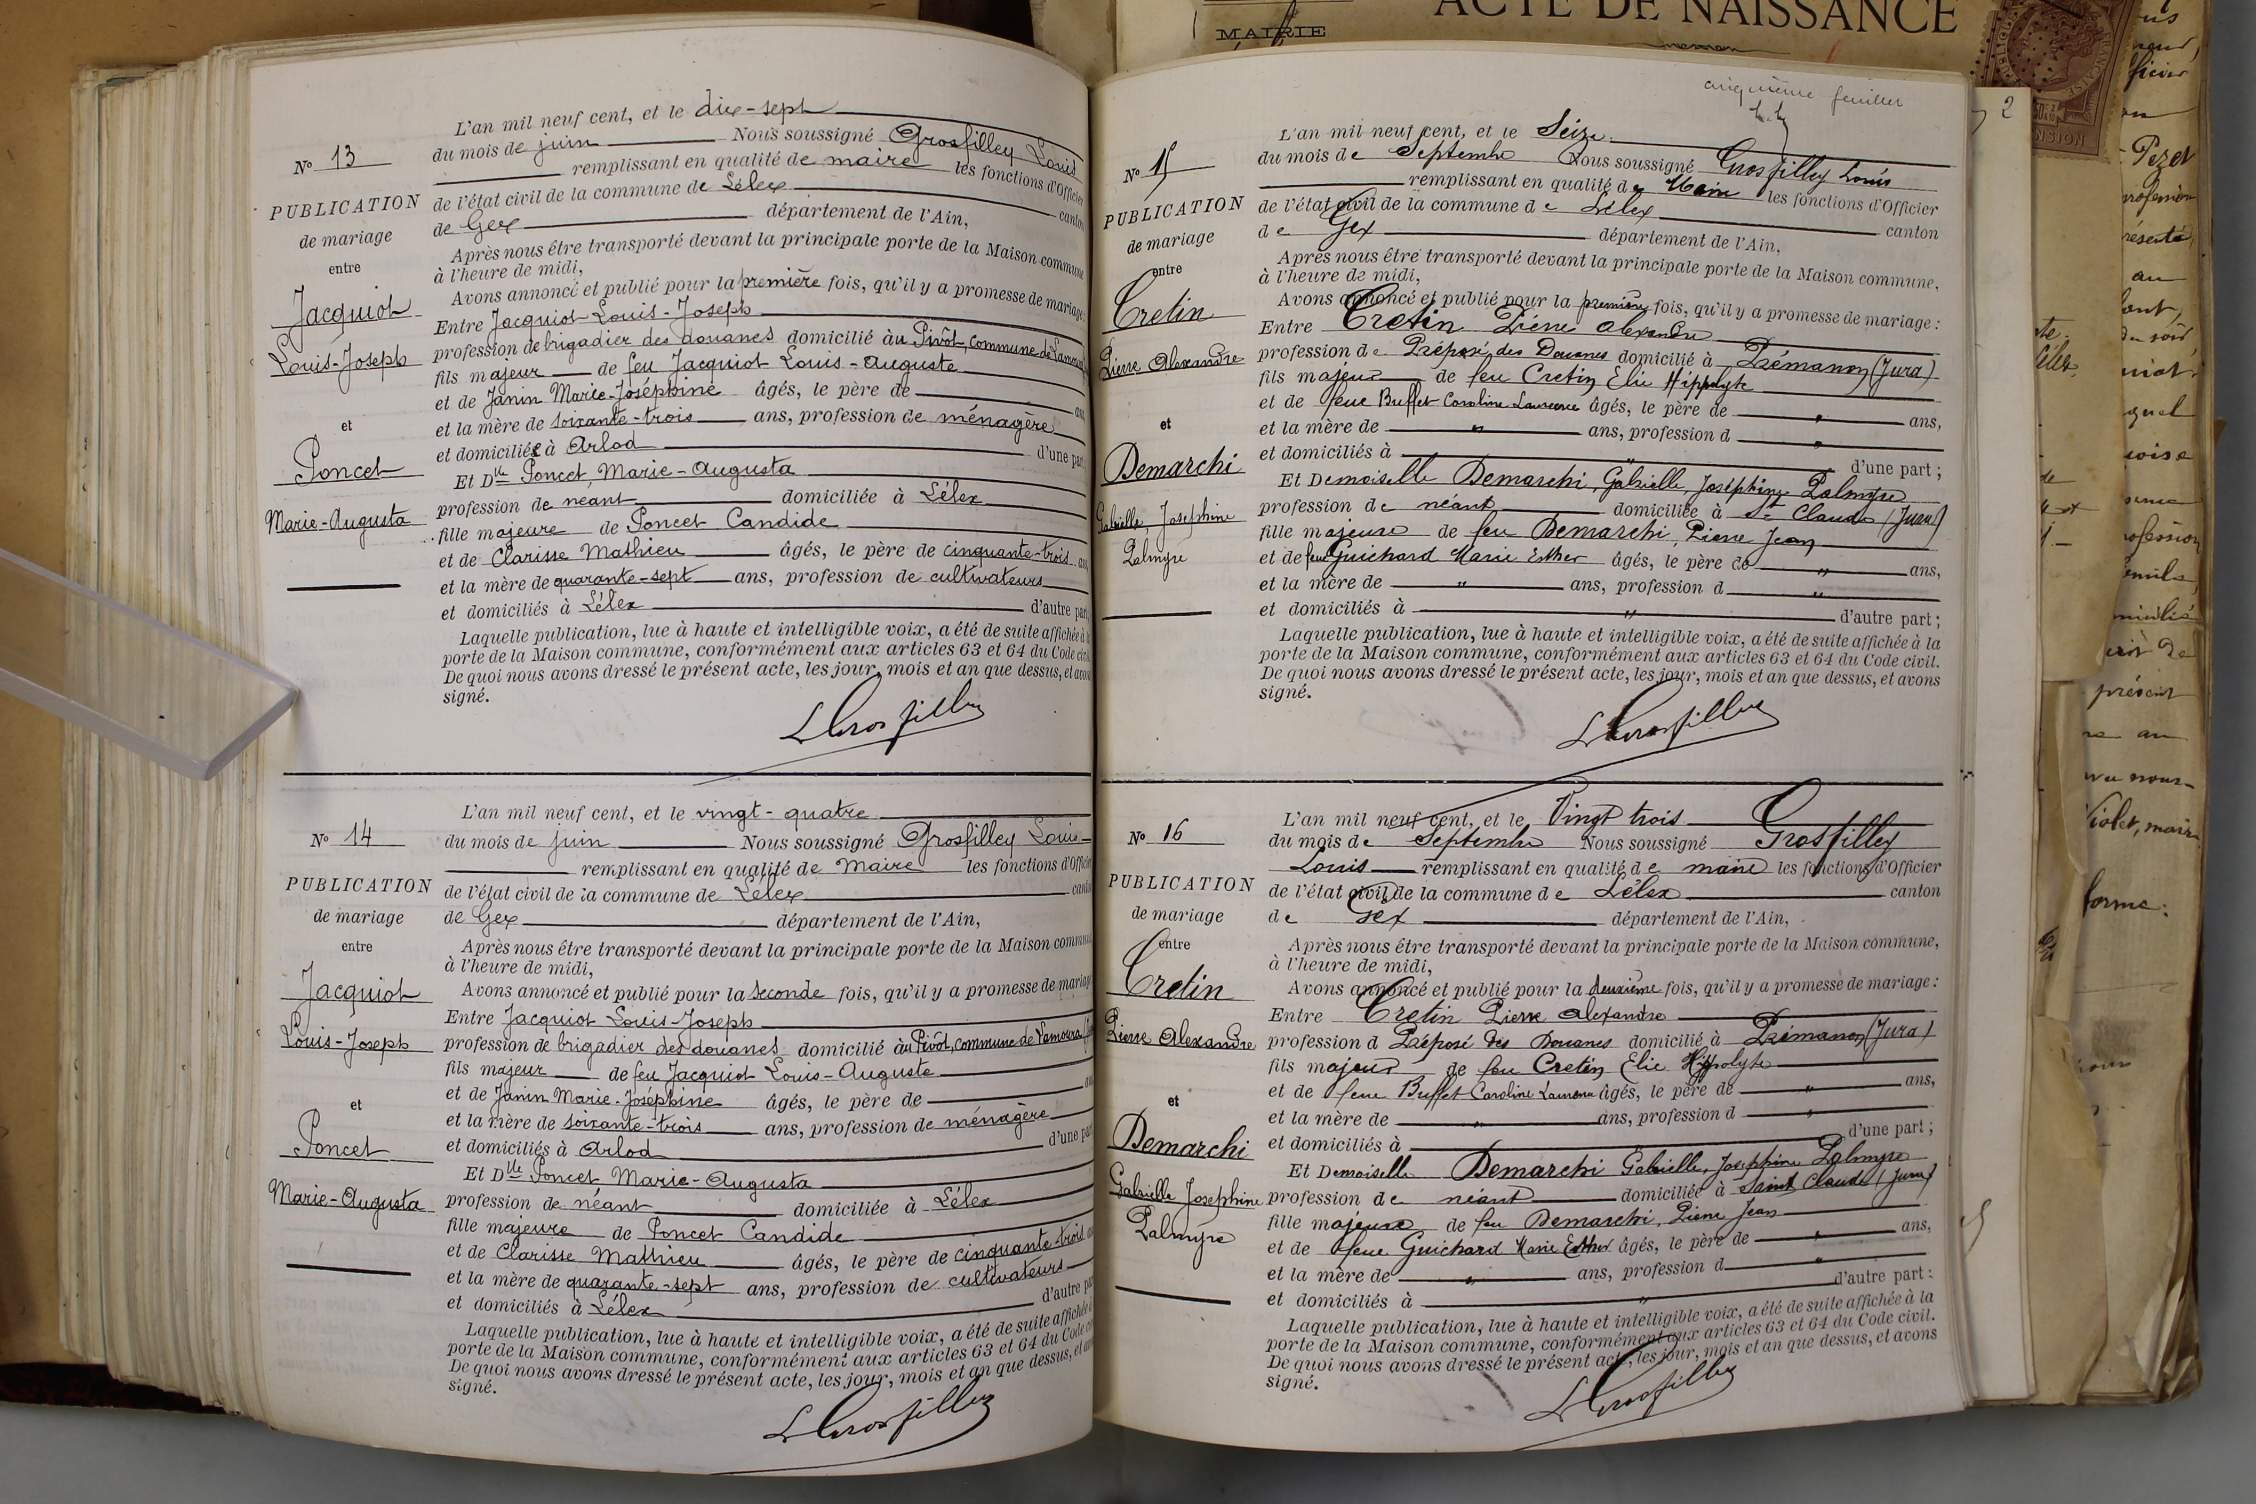 L'an mil neuf cent, et le dix-sept
du mois de juin Nous soussigné Grosfilley Louis
N° 13
remplissant en qualité de maire les fonctions d'Officier
PUBLICATION
de mariage
entre
Jacquiot
Louis-Joseph
et
Poncet
Marie-Augusta
de l'état civil de la commune de Lélex canton
de Gex département de l'Ain,
Après nous être transporté devant la principale porte de la Maison commune
à l'heure de midi,
Avons annoncé et publié pour la première fois, qu'il y a promesse de mariage:
Entre Jacquiot Louis-Joseph
profession de brigadier des douanes domicilié au Pivôt, commune de Lamoura
fils majeur de feu Jacquiot Louis-Auguste
et de Janin Marie-Joséphine âgés, le père de ans
et la mère de soixante-trois ans, profession de ménagère
et domiciliés à Arlod d'une part
Et Dlle Poncet, Marie-Augusta
profession de néant domiciliée à Lélex
fille majeure de Poncet Candide
et de Clarisse Mathieu âgés, le père de cinquante-trois ans
et la mère de quarante-sept ans, profession de cultivateurs
et domiciliés à Lélex d'autre part
Laquelle publication, lue à haute et intelligible voix, a été de suite affichée à la
porte de la Maison commune, conformément aux articles 63 et 64 du Code civil
De quoi nous avons dressé le présent acte, les jour, mois et an que dessus, et avons
signé.
L Grosfilley
L'an mil neuf cent, et le vingt-quatre
N° 14
du mois de juin Nous soussigné Grosfilley Louis
remplissant en qualité de Maire les fonctions d'Officier
PUBLICATION
de mariage
entre
Jacquiot
Louis-Joseph
et
Poncet
Marie-Augusta
de l'état civil de la commune de Lélex canton
de Gex département de l'Ain,
Après nous être transporté devant la principale porte de la Maison commune
à l'heure de midi,
Avons annoncé et publié pour la seconde fois, qu'il y a promesse de mariage
Entre Jacquiot Louis-Joseph
profession de brigadier des douanes domicilié au Pivôt, commune de Lamoura
fils majeur de feu Jacquiot Louis-Auguste
et de Janin Marie-Joséphine âgés, le père de ans
et la mère de soixante-trois ans, profession de ménagère
et domiciliés à Arlod d'une part
Et Dlle Poncet Marie-Augusta
profession de néant domiciliée à Lélex
fille majeure de Poncet Candide
et de Clarisse Mathieu âgés, le père de cinquante-trois ans
et la mère de quarante-sept ans, profession de cultivateurs
et domiciliés à Lélex d'autre part
Laquelle publication, lue à haute et intelligible voix, a été de suite affichée à
porte de la Maison commune, conformément aux articles 63 et 64 du Code
De quoi nous avons dressé le présent acte, les jour, mois et an que dessus, et avons
signé.
L Grosfilley
MAIRIE
ACTE DE NAISSANCE
cinquième feuillet
2
L'an mil neuf cent, et le Seize
du mois de Septembre Nous soussigné Grosfilley Louis
N° 15
remplissant en qualité de Maire les fonctions d'Officier
PUBLICATION
de mariage
entre
Cretin
Pierre Alexandre
et
Demarchi
Gabrielle Josephine
Palmyre
de l'état civil de la commune de Lélex canton
de Gex département de l'Ain,
Après nous être transporté devant la principale porte de la Maison commune,
à l'heure de midi,
Avons annoncé et publié pour la première fois, qu'il y a promesse de mariage :
Entre Cretin Pierre Alexandre
profession de Préposé des Douanes domicilié à Prémanon (Jura)
fils majeur de feu Cretin Elie Hippolyte
et de feue Buffet Caroline Laurence âgés, le père de " ans,
et la mère de " ans, profession d "
et domiciliés à " d'une part ;
Et Demoiselle Demarchi, Gabrielle, Joséphine Palmyre
profession de néant domiciliée à St Claude (Jura)
fille majeure de feu Demarchi, Pierre Jean
et de feue Guichard Marie Esther âgés, le père de " ans,
et la mère de " ans, profession d "
et domiciliés à " d'autre part ;
Laquelle publication, lue à haute et intelligible voix, a été de suite affichée à la
porte de la Maison commune, conformément aux articles 63 et 64 du Code civil.
De quoi nous avons dressé le présent acte, les jour, mois et an que dessus, et avons
signé.
L Grosfilley
L'an mil neuf cent, et le Vingt trois
N° 16
du mois de Septembre Nous soussigné Grosfilley
Louis remplissant en qualité de maire les fonctions d'Officier
PUBLICATION
de mariage
entre
Cretin
Pierre Alexandre
et
Demarchi
Gabrielle Josephine
Palmyre
de l'état civil de la commune de Lélex canton
de Gex département de l'Ain,
Après nous être transporté devant la principale porte de la Maison commune,
à l'heure de midi,
Avons annoncé et publié pour la deuxième fois, qu'il y a promesse de mariage :
Entre Cretin Pierre Alexandre
profession d Préposé des Douanes domicilié à Prémanon (Jura)
fils majeur de feu Cretin Elie Hippolyte
et de feue Buffet Caroline Laurence âgés, le père de " ans,
et la mère de " ans, profession d "
et domiciliés à d'une part ;
Et Demoiselle Demarchi Gabrielle, Joséphine Palmyre
profession de néant domiciliée à Saint Claude (Jura)
fille majeure de feu Demarchi, Pierre Jean
et de feue Guichard Marie Esther âgés, le père de " ans,
et la mère de " ans, profession d "
et domiciliés à " d'autre part :
Laquelle publication, lue à haute et intelligible voix, a été de suite affichée à la
porte de la Maison commune, conformément aux articles 63 et 64 du Code civil.
De quoi nous avons dressé le présent acte, les jour, mois et an que dessus, et avons
signé.
L Grosfilley
Pezet
profession
au
présent
Violet, maire
forme: